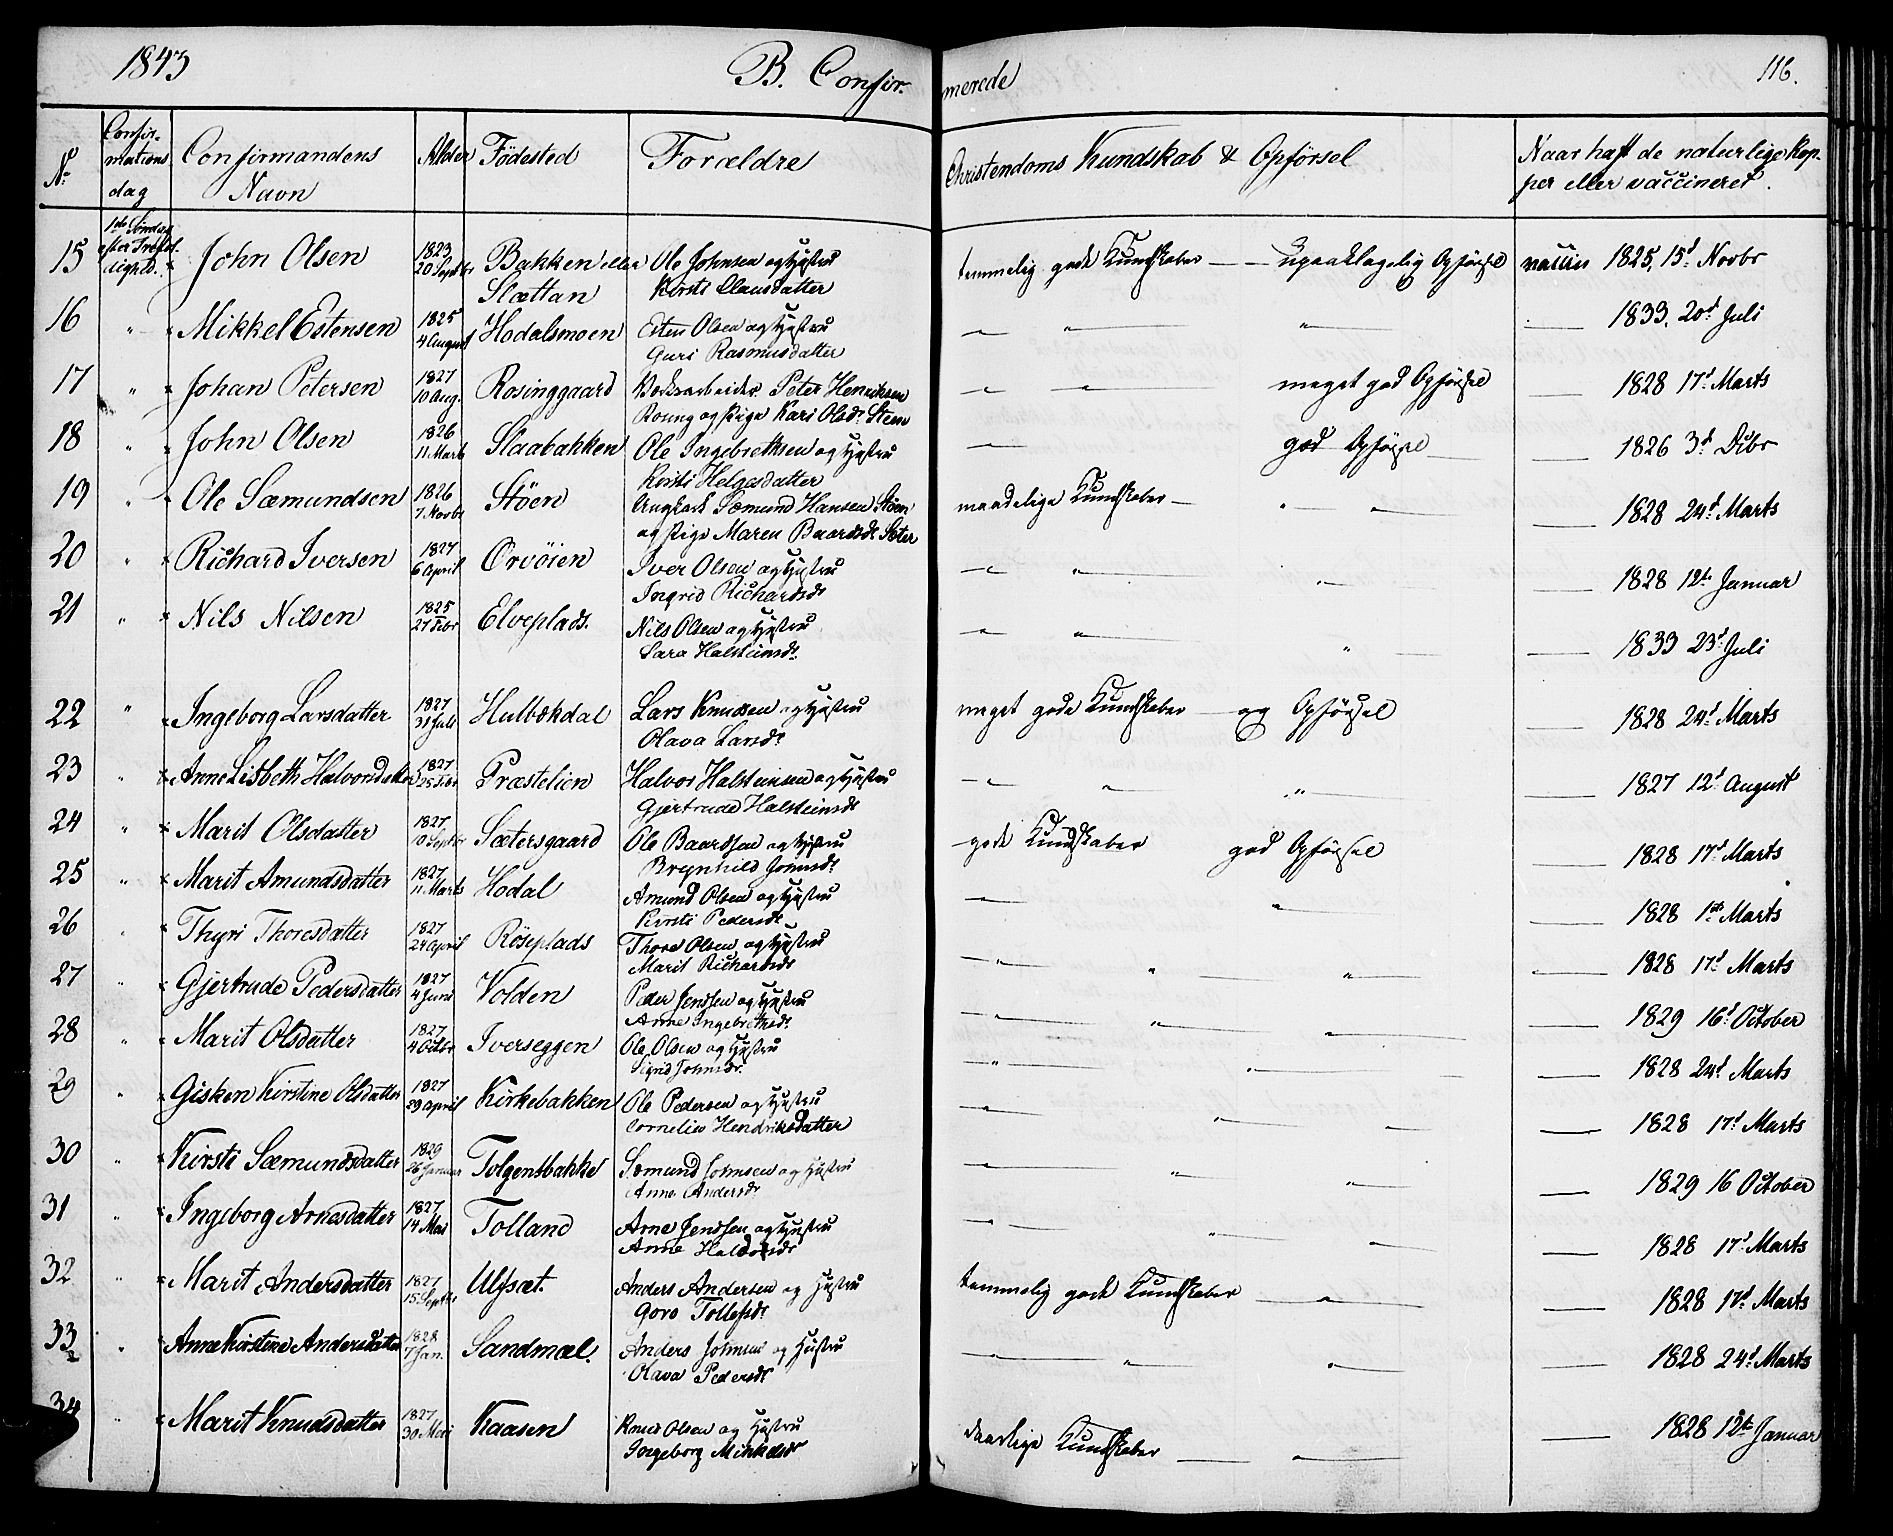 1843 B. Confir- merede 116.
No. Confirmations dag Confirmandens Navn Alder Fødested Forældre Christendoms Kundskab & Opførsel Naar haft de naturlige Kopper eller vaccineret.
15 1ste Søndag efter Trefoldighed. John Olsen 1823 20 Septbr Bakken eller Slættan Ole Johnsen og Hustru Kirsti Clausdatter temmelig gode Kundskaber — upaaklagelig Opførsel vaccin 1825, 15d Novbr
16 " Mikkel Estensen 1825 4 August Hodalsmoen Esten Olsen og Hustru Guri Rasmusdatter — " " — 1833, 20d Juli
17 " Johan Petersen 1827 10 Aug. Rosinggaard Peter Henriksen Roung og Pige Kari Olsdr. Steen — " meget god Opførsel — 1828 17d Marts
18 " John Olsen 1826 11 Marts Slaabakken Ole Ingebrethsen og Hustru Kirsti Helgesdatter — god Opførsel — 1826 3d Dcbr
19 " Ole Sæmundsen 1826 7. Novbr Støen Ungkarl Sæmund Hansen Støen og Pige Maren Baardsdr Sæter maadelige Kundskaber — " — 1828 24d Marts
20 " Richard Iversen 1827 6 April Orvöien Iver Olsen og Hustru Ingrid Richardsdr — " " — 1828 12te Januar
21 " Nils Nilsen 1825 27 Febr Elveplads. Nils Olsen og Hustru Sara Halsteinsdr. — " " — 1833 23d Juli
22 " Ingeborg Larsdatter 1827 31 Juli Hulbækdal Lars Knudsen og Hustru Olava Larsdr meget gode Kundskaber og Opførsel — 1828 24d Marts
23 " Anne Lisbeth Halvorsdatter 1827 25 Febr Præstelien Halvor Halsteinsen og Hustru Gjertrude Halsteinsdr — " " — 1827 12d August
24 " Marit Olsdatter 1827 10 Septbr Sætersgaard Ole Baardsen og Hustru Brynhild Jonsdr gode Kundskaber god Opførsel — 1828 17d Marts
25 " Marit Amundsdatter 1827 11 Marts Hodal Amund Olsen og Hustru Kirsti Pedersdr — " — 1828 1ste Marts
26 " Thyri Thoresdatter 1827 24 April Röseplads Thore Olsen og Hustru Marit Richardsdr — " — " — 1828 17d Marts
27 " Gjertrude Pedersdatter 1827 4 Juni Volden Peder Jenssen og Hustru Anne Ingebrethsdr. — " — " — 1829 16d October
28 " Marit Olsdatter 1827 4 Octbr Iverseggen Ole Olsen og Hustru Sigrid Johnsdr. — " — 1828 24d Marts
29 " Gisken Kirstine Olsdatter 1827 29 April Kirkebakken Ole Pedersen og Hustru Cornelia Hendriksdatter — " — 1828 17d Marts
30 " Kirsti Sæmundsdatter 1829 26 Januar Tolgensbakke Sæmund Johnsen og Hustru Anne Andersdr — " — " — 1829 16 October
31 " Ingeborg Arnesdatter 1827 14 Mai Tolland Arne Jenssen og Hustru Anne Haldorsdr — " — 1828 17d Marts
32 " Marit Andersdatter 1827 15 Septbr Ulfsæt. Anders Andersen og Hustru Goro Tollefsdr temmelig gode Kundskaber — " — 1828 17d Marts
33 " Anne Kirstine Andersdatter 1828 7 Jan. Sandmæl. Anders Johnsen og Hustru Olava Pedersdr — " — " — 1828 24d Marts
34 " Marit Knudsdatter 1827 30 Mai Kaasen Knud Olsen og Hustru Ingeborg Mikkelsdr daarlige Kundskaber — " — 1828 12te Januar